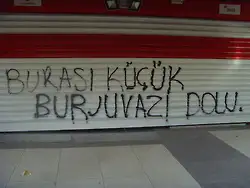 BURASI KÜÇÜK
BURJUVAZİ DOLU.